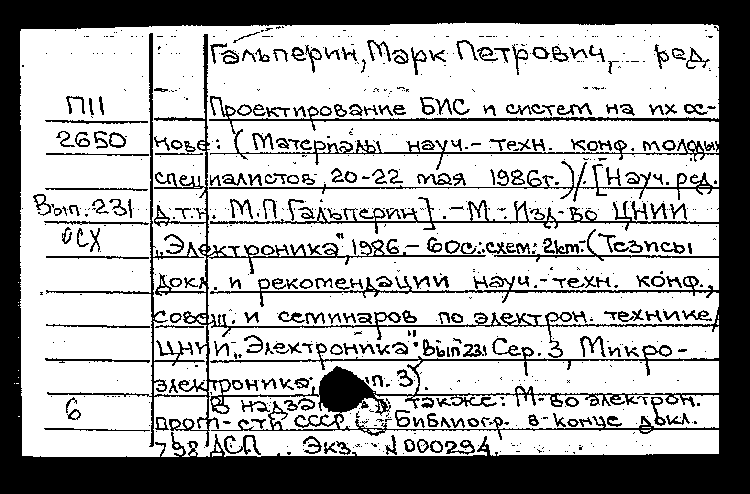 Гальперин, Марк Петрович, ред.
П11 Проектирование БИС и систем на их ос-
2650 нове: (Материалы науч.-техн. конф. молодых
специалистов, 20-22 мая 1986г.)/[Науч. ред.
Вып. 231 д.т.н. М.П.Гальперин]. - М.: Изд-во ЦНИИ
ОСХ „Электроника", 1986. - 60с.: схем; 21см. - (Тезисы
докл. и рекомендаций науч.-техн. конф.,
совещ. и семинаров по электрон. технике/
ЦНИИ „Электроника". Вып 231 Сер. 3, Микро-
электроника, п. 3).
6 В надзаг также: М-во электрон.
пром-сти СССР. Библиогр. в конце докл.
798 ДСП. Экз. N 000294.